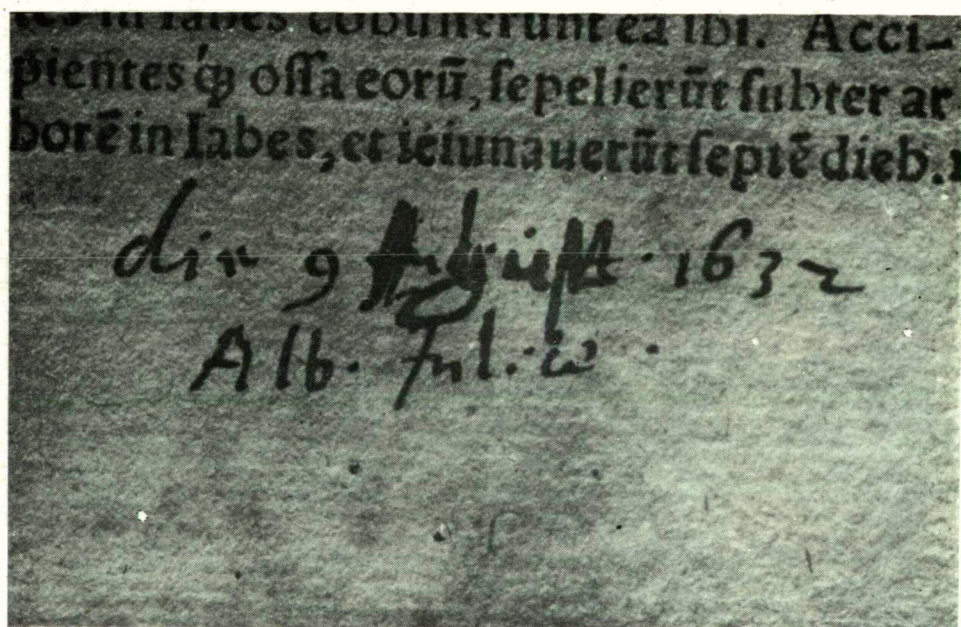 tes in Iabes cobuſſerunt ea ibi. Acci-
pientesq́ꝫ oſſa eorū, ſepelierūt ſubter ar
borē in Iabes, et ieiunauerūt ſeptē dieb.
die 9 Auguſti 1632
Alb. Juliæ.